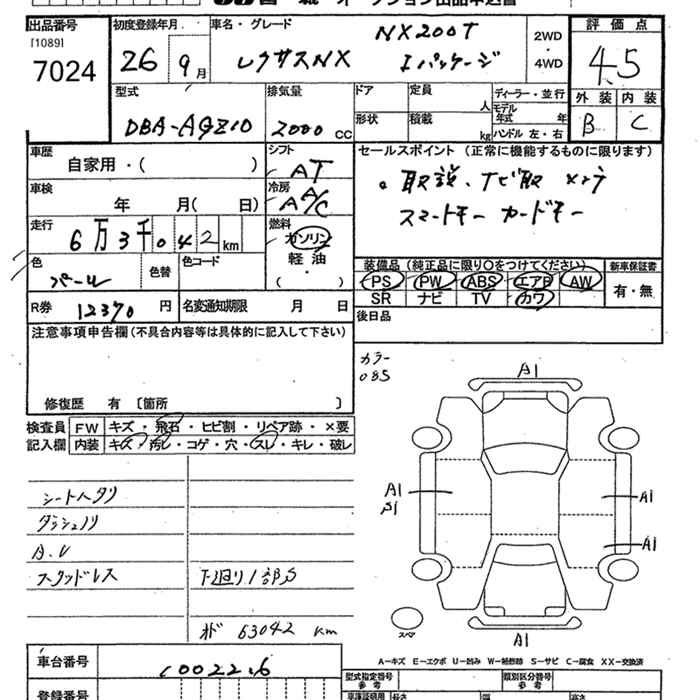 出品番号 初度登録年月 車名・グレード 評価点
[1089]
7024 26年 9月 レクサスNX NX200T Iパッケージ 2WD・4WD 4.5
外装 内装
B C
型式 排気量 ドア 定員 人 ディーラー・並行
DBA-AGZ10 2000 CC 形状 積載 kg モデル年式 年
ハンドル 左・右
車歴 自家用・( ) シフト AT
セールスポイント (正常に機能するものに限ります)
取説、ナビ取
スマートキー カードキー
車検 年 月( 日) 冷房 A/C
走行 6万3千042km 燃料 ガソリン
軽油
( )
色 パール 色替 色コード
装備品 (純正品に限り○をつけてください) 新車保証書
PS PW ABS エアB AW 有・無
SR ナビ TV カワ
R券 12370円 名変通知期限 月 日
後日品
注意事項申告欄(不具合内容等は具体的に記入して下さい)
修復歴 有 〔箇所 〕
カラー
085
検査員 FW キズ・飛石・ヒビ割・リペア跡・×要
記入欄 内装 キズ・汚レ・コゲ・穴・スレ・キレ・破レ
シートヘタリ
ダッシュノリ
A.V
スタッドレス 下廻り1部S
メーター 63042 km
A1
A1
S1
A1
A1
A1
スペア
A-キズ E-エクボ U-凹み W-補修跡 S-サビ C-腐食 XX-交換済
車台番号 1002226
型式指定番号 参考 類別区分番号 参考
登録番号 車庫証明用 長さ 幅 高さ